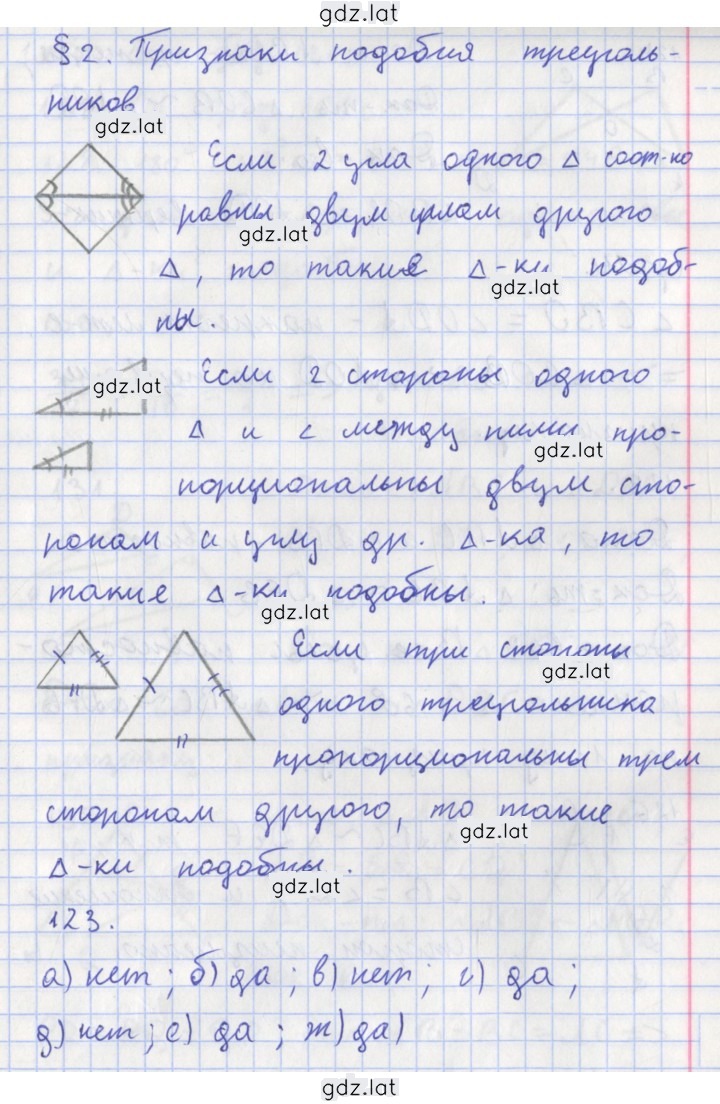 gdz.lat
§ 2. Признаки подобия треуголь-
ников
gdz.lat
Если 2 угла одного Δ соот-но
равны двум углам другого
gdz.lat
Δ, то такие Δ-ки подоб-
gdz.lat
ны.
Если 2 стороны одного
gdz.lat
Δ и ∠ между ними про-
gdz.lat
порциональны двум сто-
ронам и углу др. Δ-ка, то
такие Δ-ки подобны.
gdz.lat
Если три стороны
gdz.lat
одного треугольника
пропорциональны трем
сторонам другого, то такие
gdz.lat
Δ-ки подобны.
gdz.lat
123.
а) нет; б) да; в) нет; г) да;
д) нет; е) да; ж) да)
gdz.lat